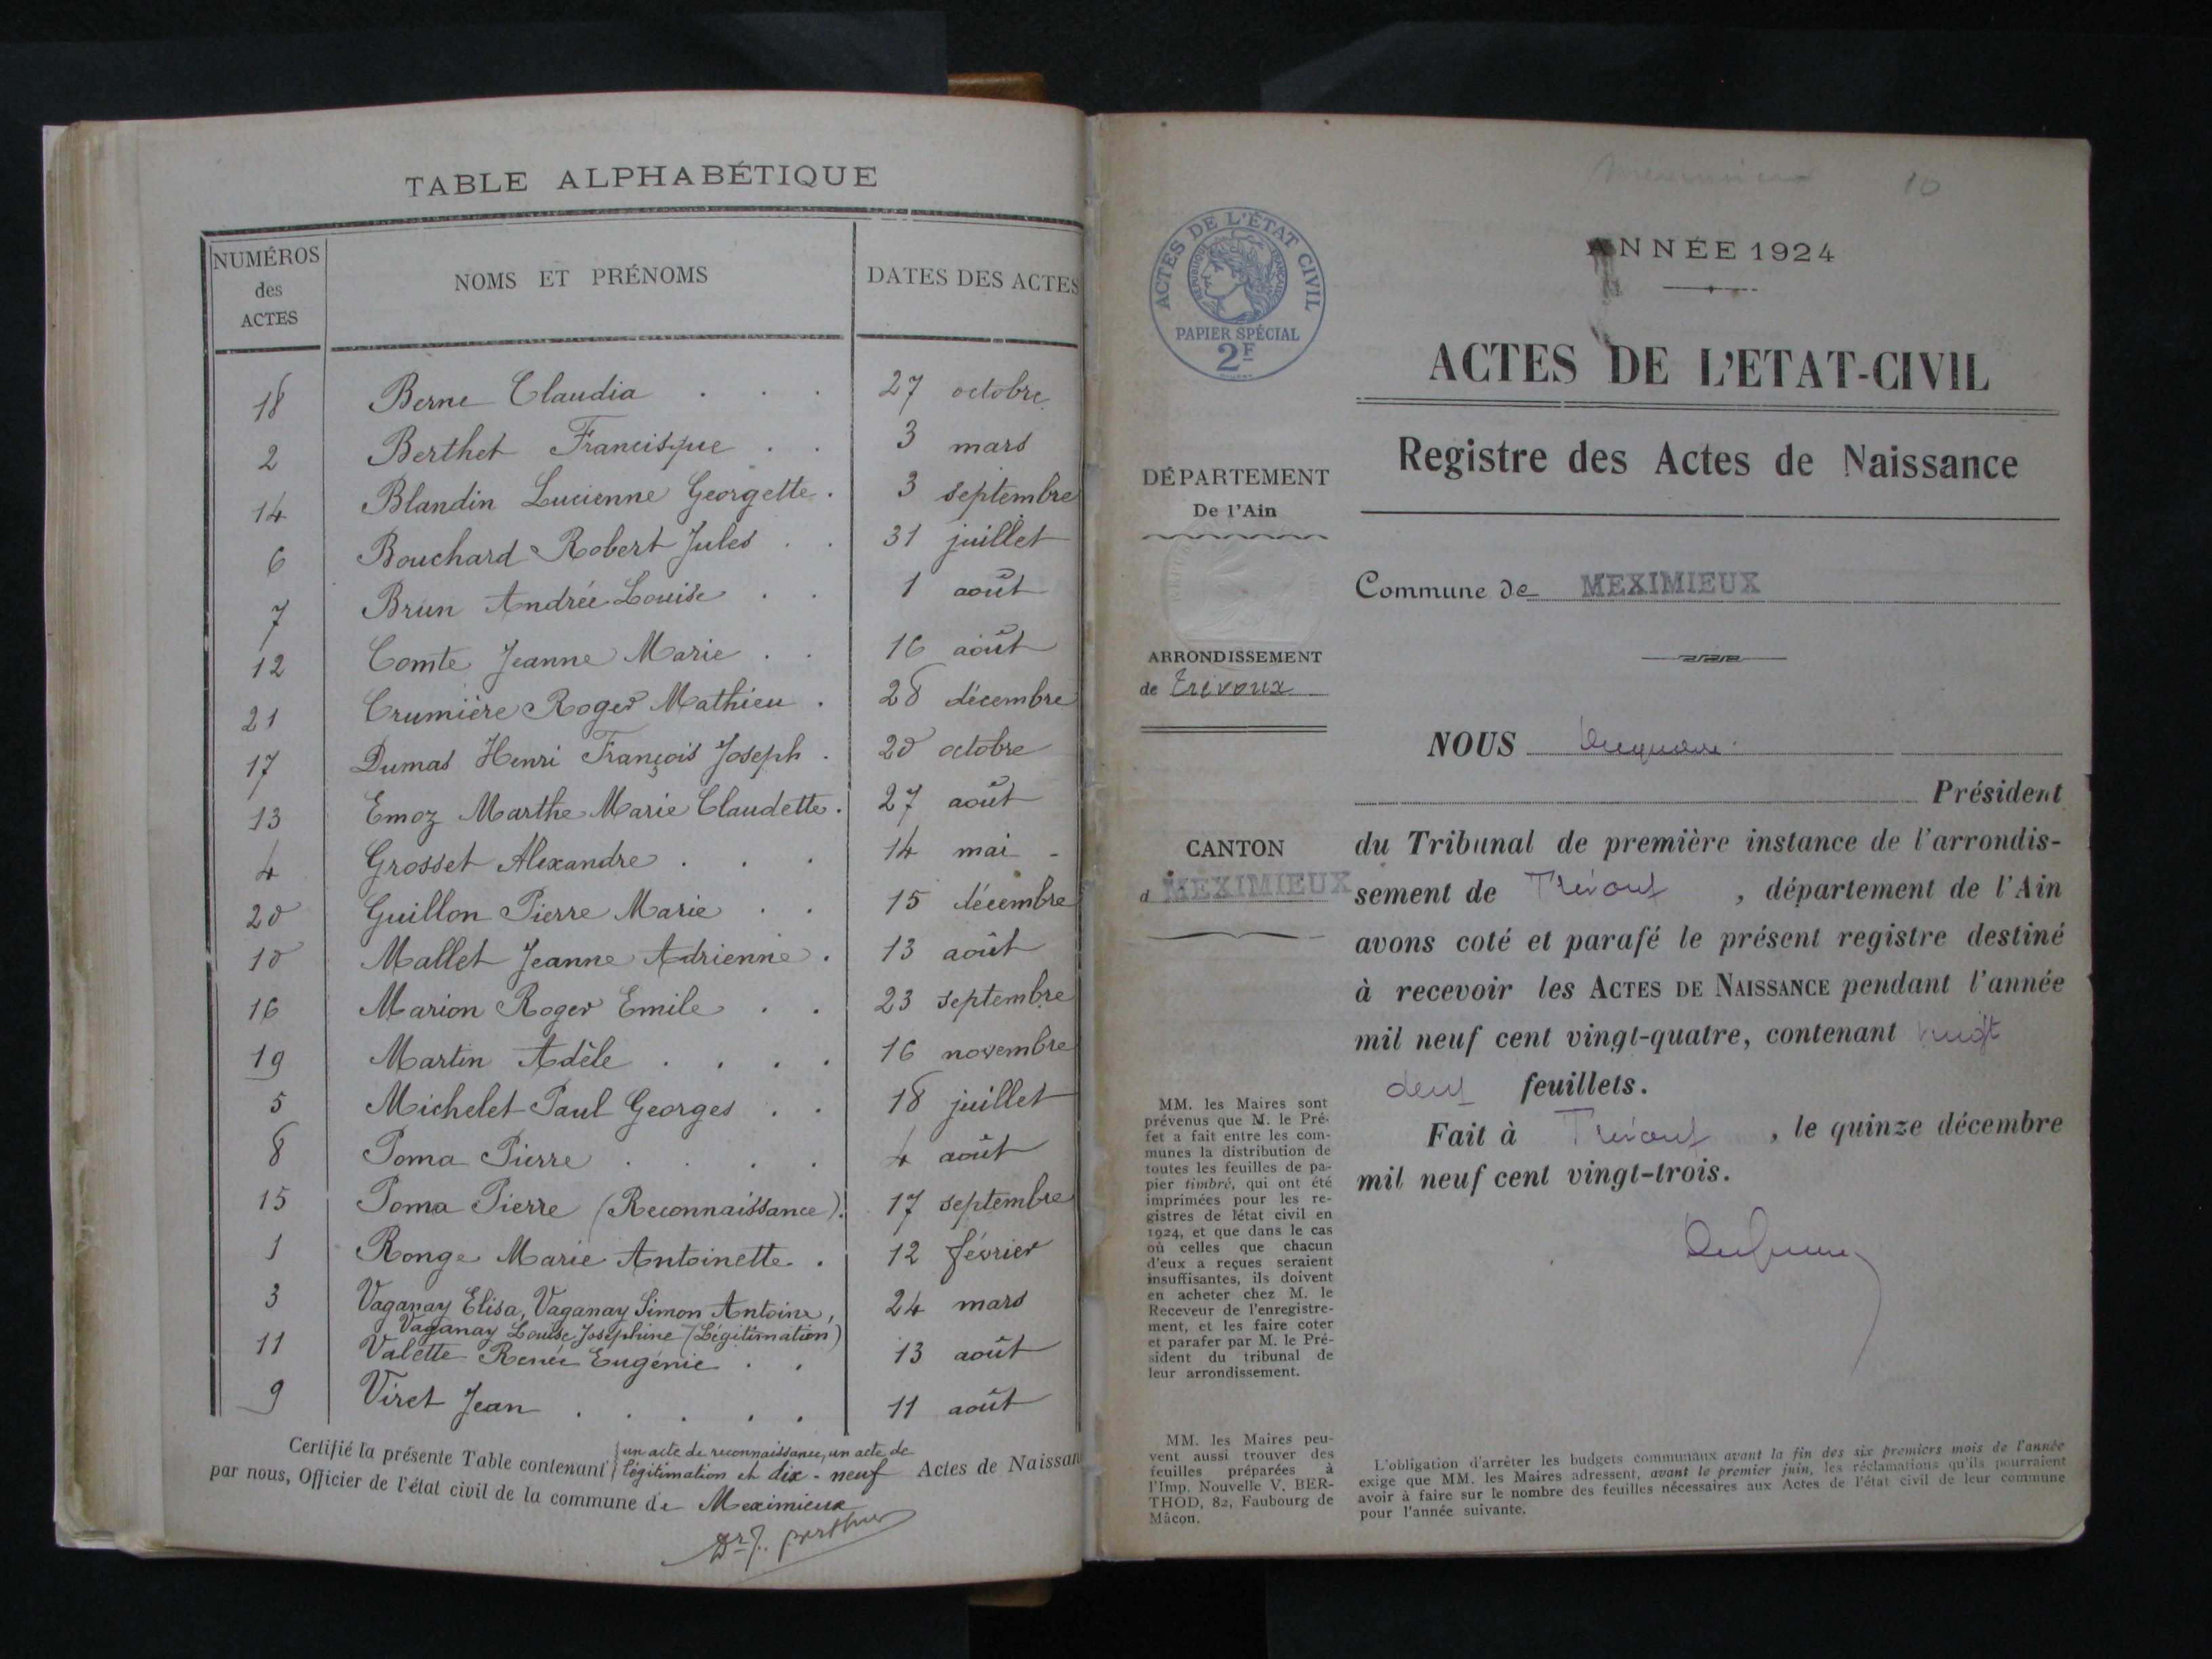 TABLE ALPHABÉTIQUE
NUMÉROS des ACTES NOMS ET PRÉNOMS DATES DES ACTES
18 Berne Claudia . . . 27 octobre
2 Berthet Francisque . . 3 mars
14 Blandin Lucienne Georgette . 3 septembre
6 Bouchard Robert Jules . . 31 juillet
7 Brun Andrée Louise . . 1 août
12 Comte Jeanne Marie . . 16 août
21 Crumière Roger Mathieu . 28 décembre
17 Dumas Henri François Joseph . 20 octobre
13 Emoz Marthe Marie Claudette . 27 août
4 Grosset Alexandre . . . 14 mai -
20 Guillon Pierre Marie . . 15 décembre
10 Mallet Jeanne Adrienne . 13 août
16 Marion Roger Emile . . 23 septembre
19 Martin Adèle . . . . 16 novembre
5 Michelet Paul Georges . . 18 juillet
8 Poma Pierre . . . . 4 août
15 Poma Pierre (Reconnaissance). 17 septembre
1 Ronge Marie Antoinette . 12 février
3 Vaganay Elisa, Vaganay Simon Antoine, 24 mars
Vaganay Louise Joséphine (Légitimation)
11 Valette Renée Eugénie . . 13 août
9 Viret Jean . . . . . 11 août
un acte de reconnaissance, un acte de
Certifié la présente Table contenant légitimation et dix-neuf Actes de Naissan
par nous, Officier de l'état civil de la commune de Meximieux
10
ACTES DE L'ÉTAT CIVIL
RÉPUBLIQUE FRANÇAISE
PAPIER SPÉCIAL
2F
DÉPARTEMENT
De l'Ain
ARRONDISSEMENT
de Trévoux
CANTON
d MEXIMIEUX
MM. les Maires sont
prévenus que M. le Pré-
fet a fait entre les com-
munes la distribution de
toutes les feuilles de pa-
pier timbré, qui ont été
imprimées pour les re-
gistres de létat civil en
1924, et que dans le cas
où celles que chacun
d'eux a reçues seraient
insuffisantes, ils doivent
en acheter chez M. le
Receveur de l'enregistre-
ment, et les faire coter
et parafer par M. le Pré-
sident du tribunal de
leur arrondissement.
MM. les Maires peu-
vent aussi trouver des
feuilles préparées à
l'Imp. Nouvelle V. BER-
THOD, 82, Faubourg de
Mâcon.
ANNÉE 1924
ACTES DE L'ETAT-CIVIL
Registre des Actes de Naissance
Commune de MEXIMIEUX
NOUS
Président
du Tribunal de première instance de l'arrondis-
sement de Trévoux , département de l'Ain
avons coté et parafé le présent registre destiné
à recevoir les ACTES DE NAISSANCE pendant l'année
mil neuf cent vingt-quatre, contenant vingt
deux feuillets.
Fait à Trévoux , le quinze décembre
mil neuf cent vingt-trois.
L'obligation d'arrêter les budgets communaux avant la fin des six premiers mois de l'année
exige que MM. les Maires adressent, avant le premier juin, les réclamations qu'ils pourraient
avoir à faire sur le nombre des feuilles nécessaires aux Actes de l'état civil de leur commune
pour l'année suivante.